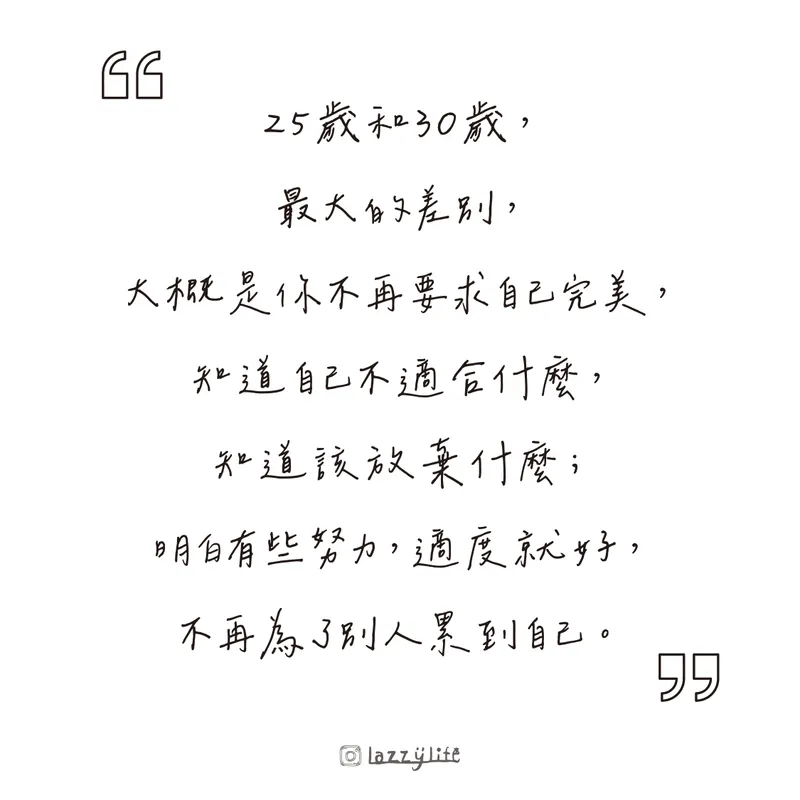 25歲和30歲，
最大的差別，
大概是你不再要求自己完美，
知道自己不適合什麼，
知道該放棄什麼；
明白有些努力，適度就好，
不再為了別人累到自己。
lazzylife